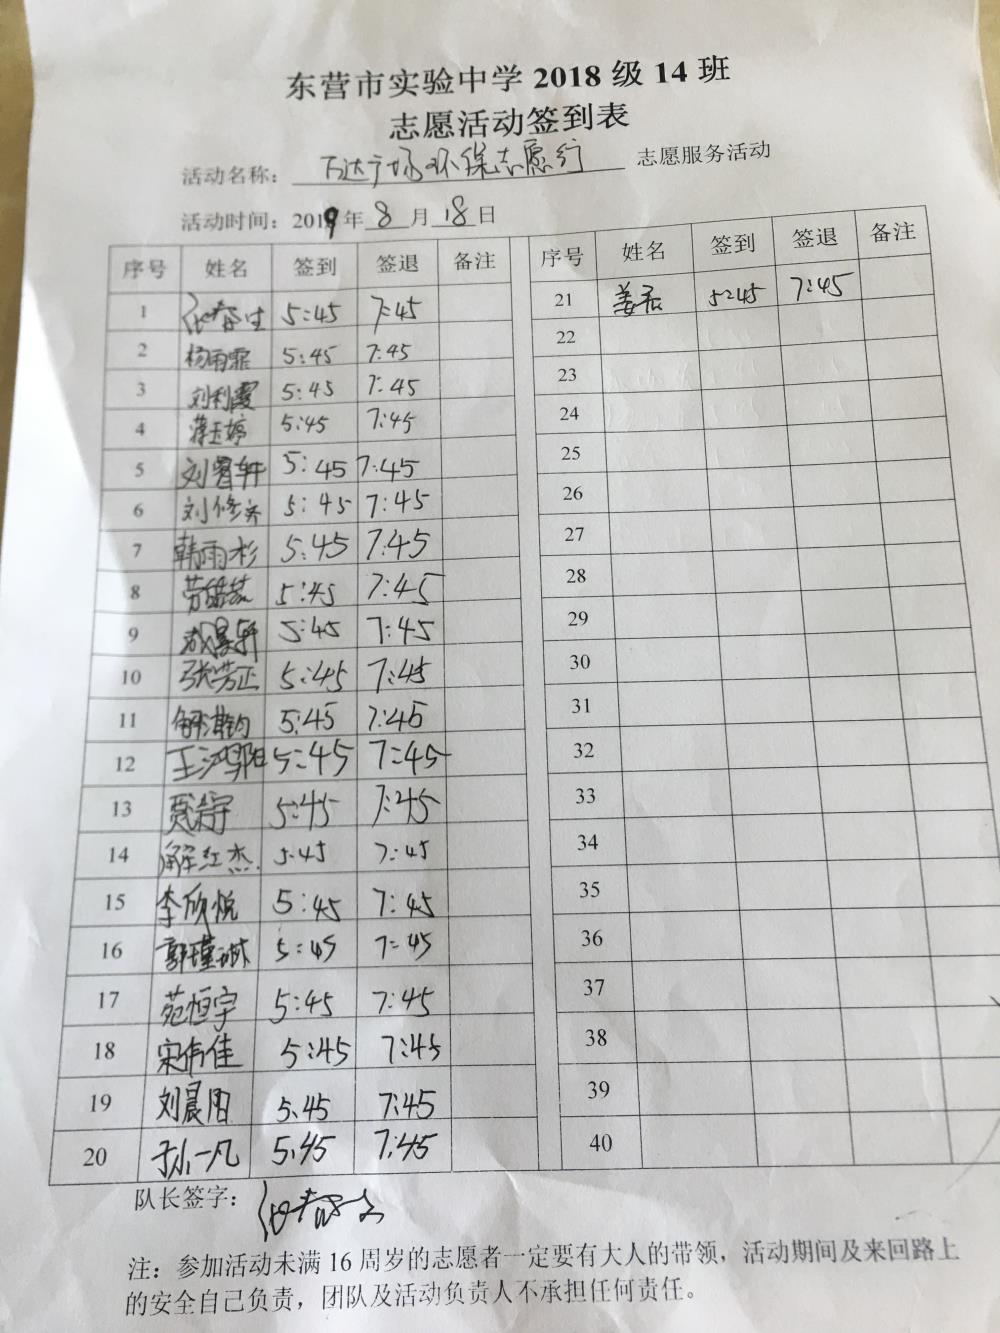 东营市实验中学 2018 级 14 班
志愿活动签到表
活动名称：万达广场环保志愿行 志愿服务活动
活动时间：2019 年 8 月 18 日
序号 姓名 签到 签退 备注
1 5:45 7:45
2 杨雨霏 5:45 7:45
3 刘利霞 5:45 7:45
4 蒋玉婷 5:45 7:45
5 刘睿轩 5:45 7:45
6 刘修齐 5:45 7:45
7 韩雨杉 5:45 7:45
8 5:45 7:45
9 5:45 7:45
10 张芳正 5:45 7:45
11 5:45 7:45
12 王鸿阳 5:45 7:45
13 5:45 7:45
14 解红杰 5:45 7:45
15 李欣悦 5:45 7:45
16 郭瑾琳 5:45 7:45
17 苑恒宇 5:45 7:45
18 宋伟佳 5:45 7:45
19 刘晨阳 5:45 7:45
20 于小凡 5:45 7:45
序号 姓名 签到 签退 备注
21 姜君 5:45 7:45
22
23
24
25
26
27
28
29
30
31
32
33
34
35
36
37
38
39
40
队长签字：
注：参加活动未满 16 周岁的志愿者一定要有大人的带领，活动期间及来回路上
的安全自己负责，团队及活动负责人不承担任何责任。